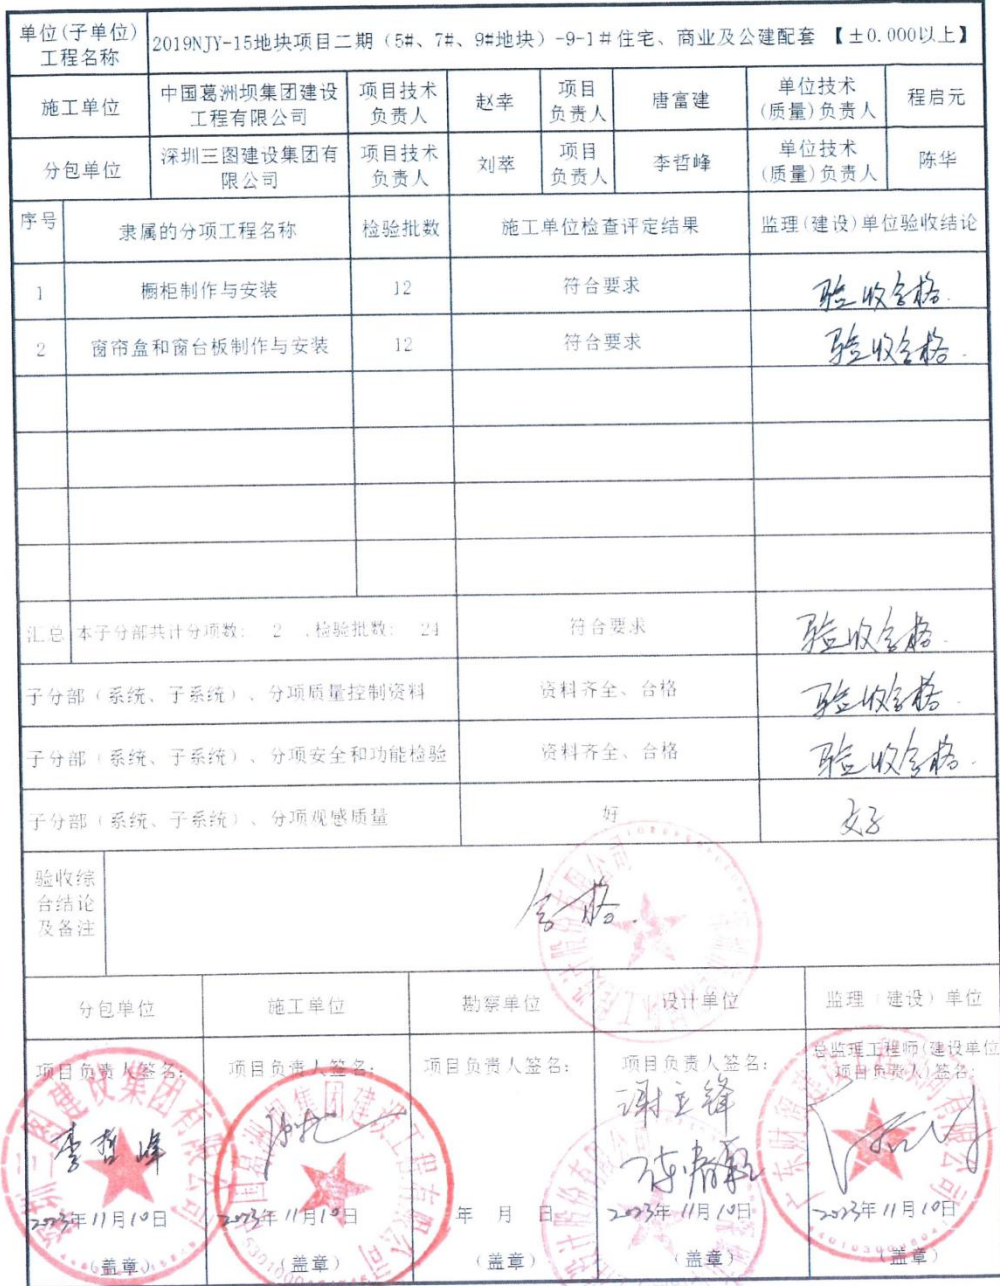 单位(子单位)
工程名称
2019NJY-15地块项目二期（5#、7#、9#地块）-9-1＃住宅、商业及公建配套 【±0.000以上】
施工单位
中国葛洲坝集团建设
工程有限公司
项目技术
负责人
赵幸
项目
负责人
唐富建
单位技术
(质量)负责人
程启元
分包单位
深圳三图建设集团有
限公司
项目技术
负责人
刘萃
项目
负责人
李哲峰
单位技术
(质量)负责人
陈华
序号
隶属的分项工程名称
检验批数
施工单位检查评定结果
监理(建设)单位验收结论
1
橱柜制作与安装
12
符合要求
验收合格.
2
窗帘盒和窗台板制作与安装
12
符合要求
验收合格.
汇总
本子分部共计分项数: 2 ,检验批数: 24
符合要求
验收合格.
子分部（系统、子系统）、分项质量控制资料
资料齐全、合格
验收合格.
子分部（系统、子系统）、分项安全和功能检验
资料齐全、合格
验收合格.
子分部（系统、子系统）、分项观感质量
好
好
验收综
合结论
及备注
合格.
分包单位
施工单位
勘察单位
设计单位
监理（建设）单位
项目负责人签名:
项目负责人签名:
项目负责人签名:
项目负责人签名:
总监理工程师(建设单位
项目负责人)签名:
李哲峰
谢立锋
2023年11月10日
2023年11月10日
年 月 日
2023年11月10日
2023年11月10日
(盖章)
(盖章)
(盖章)
(盖章)
(盖章)